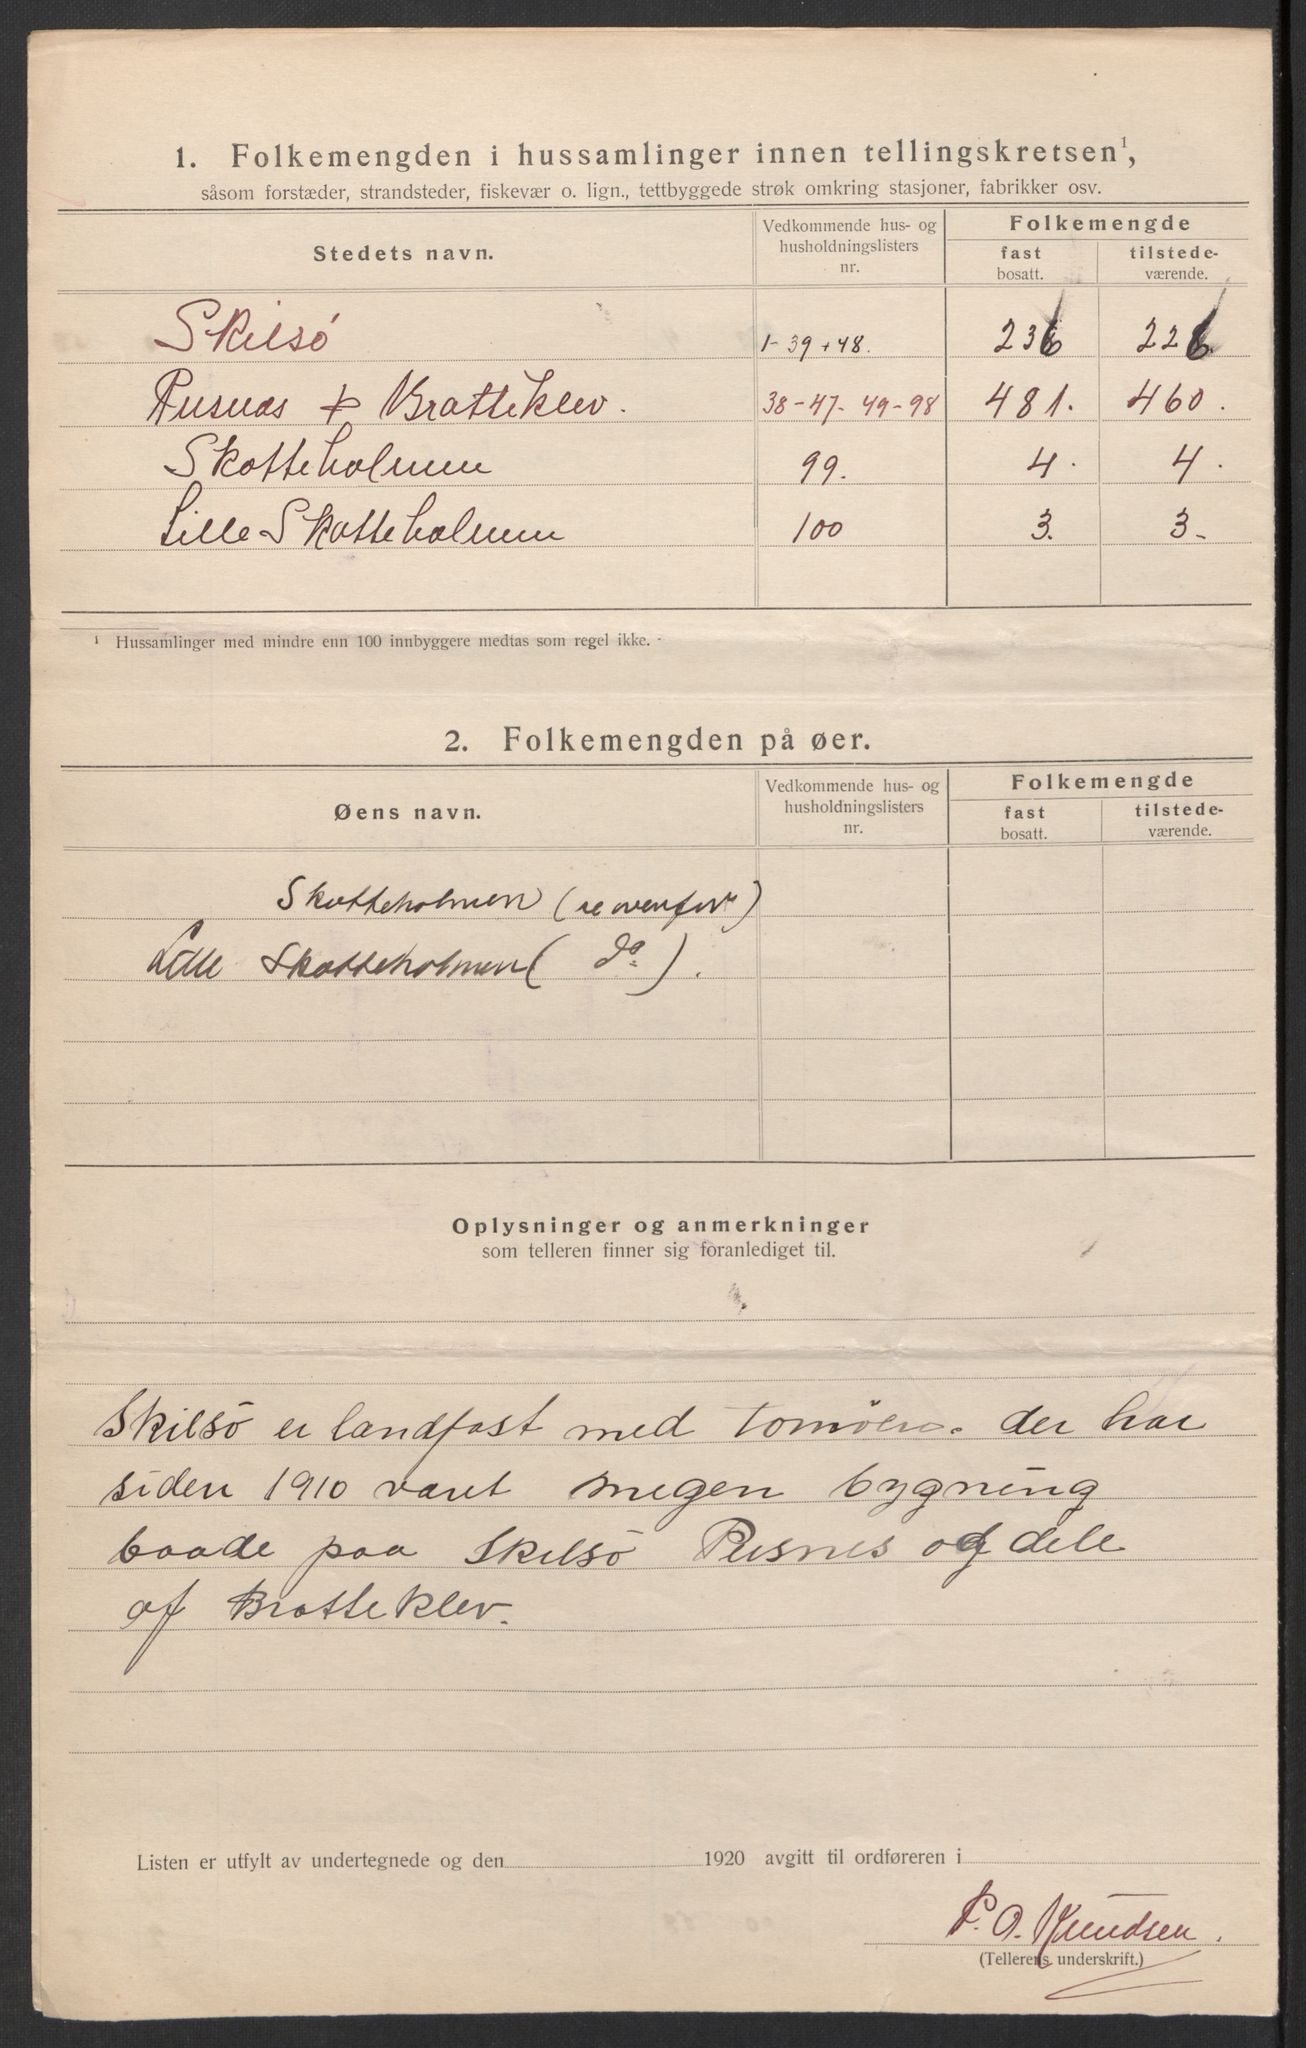 1. Folkemengden i hussamlinger innen tellingskretsen¹,
såsom forstæder, strandsteder, fiskevær o. lign., tettbyggede strøk omkring stasjoner, fabrikker osv.
Stedets navn. Vedkommende hus- og husholdningslisters nr. Folkemengde fast bosatt. tilstede-værende.
Skilsö 1-39+48. 236 226
Pusnæs + Bratteklev. 38-47- 49-98 481. 460.
Skotteholmen 99. 4. 4.
Lille Skotteholmen 100 3. 3-
¹ Hussamlinger med mindre enn 100 innbyggere medtas som regel ikke.
2. Folkemengden på øer.
Øens navn. Vedkommende hus- og husholdningslisters nr. Folkemengde fast bosatt. tilstede-værende.
Skotteholmen (se ovenfor)
Lille Skotteholmen ( do ).
Oplysninger og anmerkninger
som telleren finner sig foranlediget til.
Skilsö er landfast med Tomöen. der har
siden 1910 været megen bygning
baade paa Skilsö Pusnes og dele
af Bratteklev.
Listen er utfylt av undertegnede og den 1920 avgitt til ordføreren i
P. O. Knudsen.
(Tellerens underskrift.)